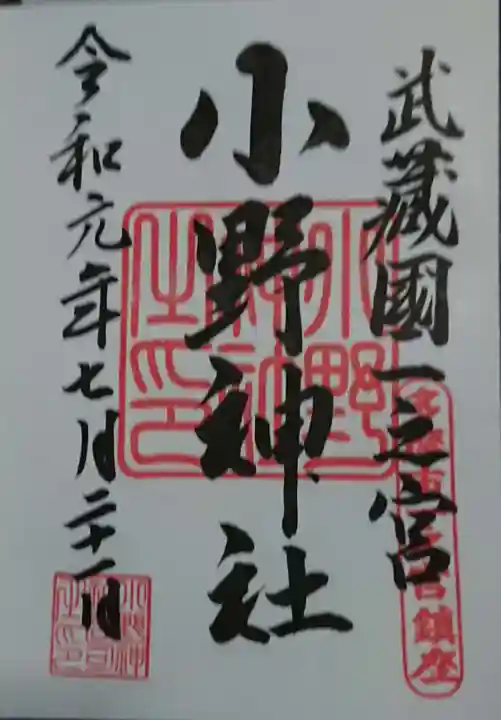 武藏國一之宮
多摩市一之宮鎮座
小野神社
小野神社之印
令和元年七月二十一日
小野神社之印